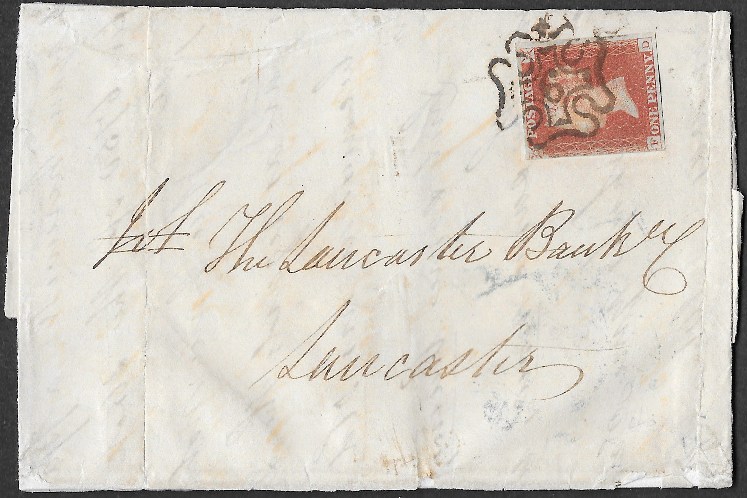 POSTAGE
ONE PENNY
The Lancaster Bank
Lancaster